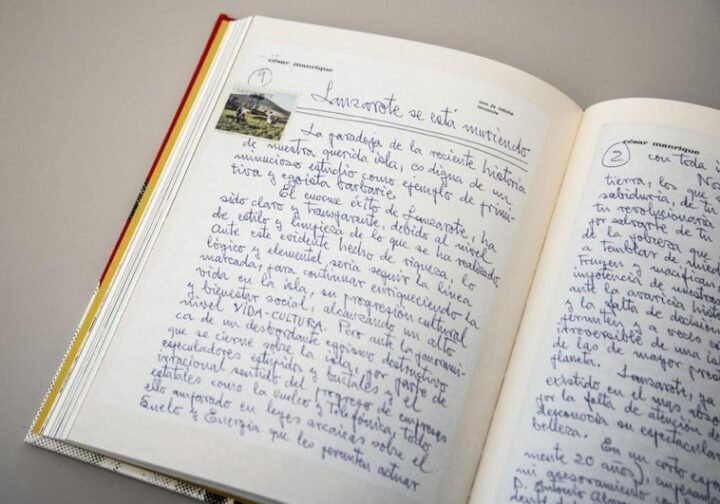 césar manrique
1
taro de tahíche
lanzarote
Lanzarote se está muriendo
La paradoja de la reciente historia
de nuestra querida isla, es digna de un
minucioso estudio como ejemplo de primi-
tiva y egoista barbarie.
El enorme éxito de Lanzarote, ha
sido claro y transparente, debido al nivel
de estilo y limpieza de lo que se ha realizado
Ante este evidente hecho de riqueza, lo
lógico y elemental, sería seguir la línea
marcada, para continuar enriqueciendo la
vida en la isla, su progresión cultural
y bienestar social, alcanzando un alto
nivel VIDA-CULTURA. Pero ante la panorámi-
ca de un desbordante egoismo destructivo
que se cierne sobre la isla, por parte de
especuladores estúpidos y brutales y el
irracional sentido del progreso de empresas
estatales como la Unelco y Telefónica, todo
ello amparado en leyes arcaicas sobre el
Suelo y Energía que les permiten actuar
césar manrique
2
con toda
No
tierra, los que
sabiduría, de tu
tu revolucionaria
por salvarte de tu
de la pobreza que
a temblar de miedo
truyen, y masifican
impotencia de nuestra
ante la avaricia histó
y la falta de decisión
permiten, y a veces
irreversible de una isla
de las de mayor pres
planeta.
Lanzarote, ya
existido en el mas abso
por la falta de atención
desconocía su espectacular
belleza.
En un corto esp
mente 20 años), empe
mi asesoramiento
D. Antonio